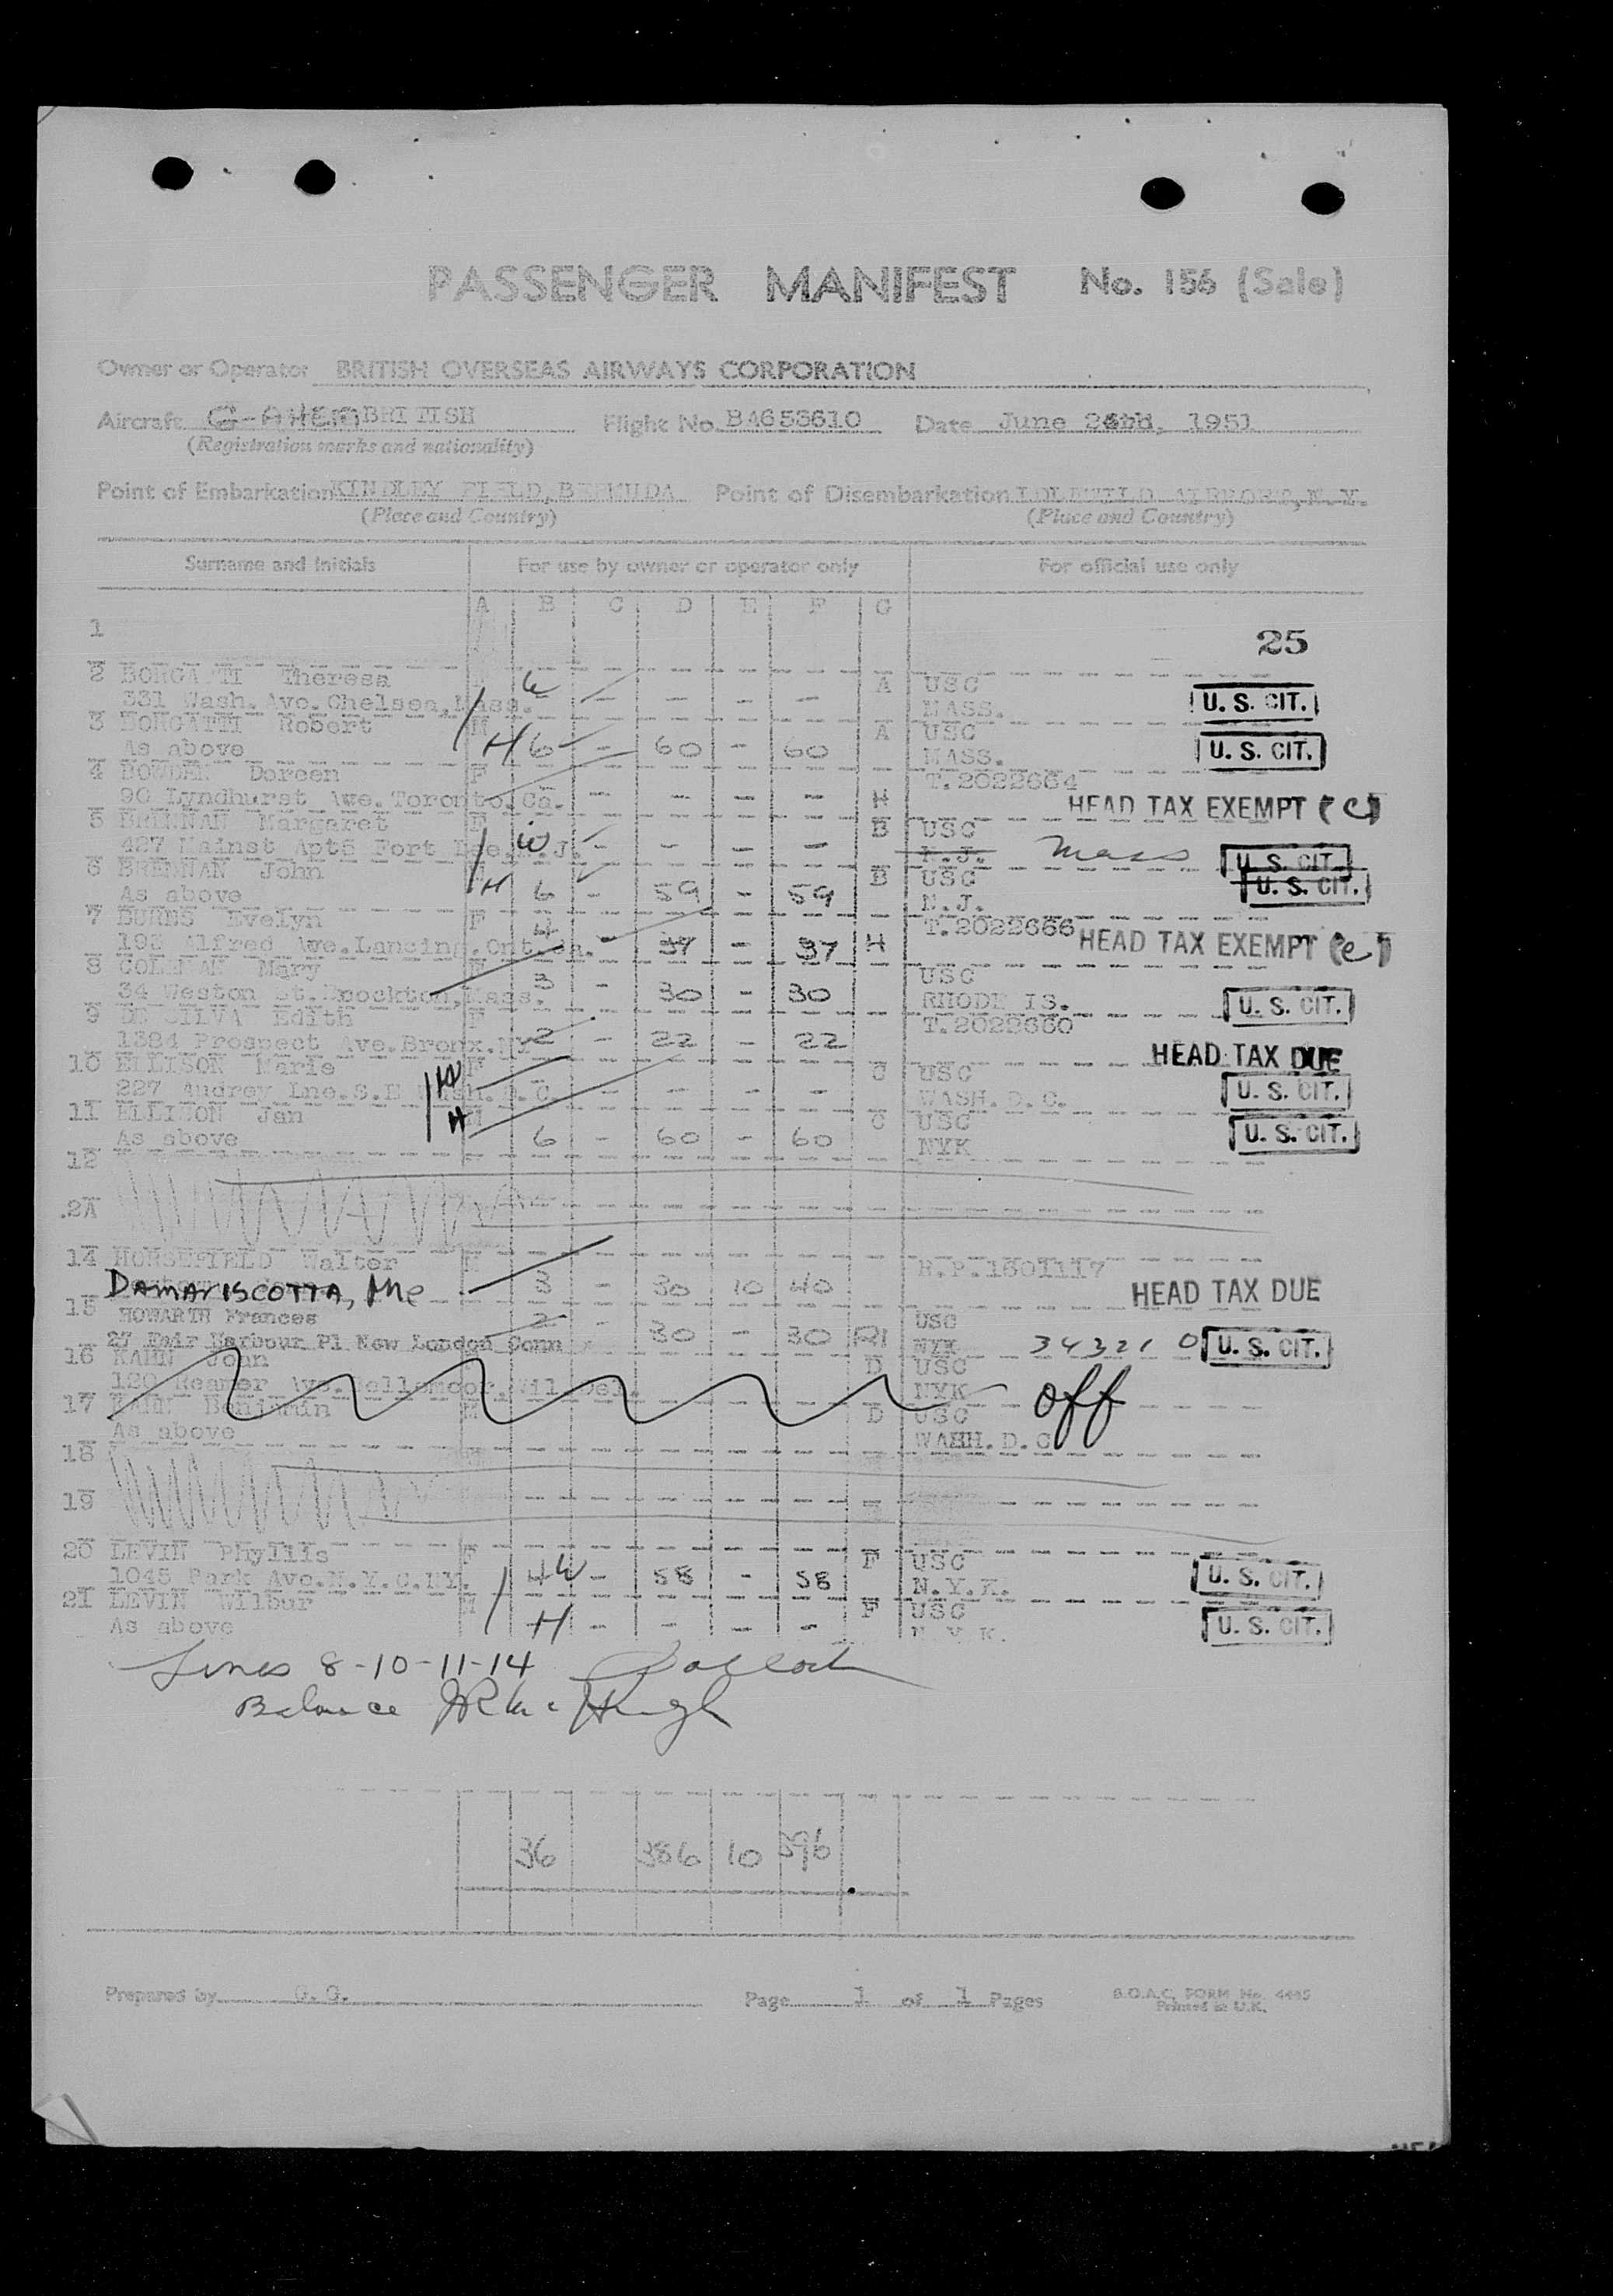 PASSENGER MANIFEST No. 156 (Sale)
Owner or Operator BRITISH OVERSEAS AIRWAYS CORPORATION
Aircraft BRITISH Flight No. BA653610 Date June 1951
(Registration marks and nationality)
Point of Embarkation KINDLEY FIELD, BERMUDA Point of Disembarkation IDLEWILD AIRPORT, N.Y.
(Place and Country) (Place and Country)
Surname and Initials For use by owner or operator only For official use only
A B C D E F G
1 25
2 BORGATTI Theresa A USC
331 Wash. Ave. Chelsea, Mass. - - - - MASS. U. S. CIT.
3 BORGATTI Robert M A USC
As above H 6 - 60 - 60 MASS. U. S. CIT.
4 BOWDEN Doreen F T.2022664
90 Lyndhurst Ave. Toronto. Ca. - - - - H HEAD TAX EXEMPT (c)
5 BRENNAN Margaret F B USC
427 Mainst Apt5 Fort Lee. N.J. W - - - - N.J. Mass U. S. CIT.
6 BRENNAN John B USC U. S. CIT.
As above H 6 - 59 - 59 N.J.
7 BURNS Evelyn F T.2022666
Alfred Ave. Lancing. Ont. Ca. 4 - 37 - 37 H HEAD TAX EXEMPT (c)
8 COLEMAN Mary F USC
34 Weston St. Brockton, Mass. 3 - 30 - 30 RHODE IS. U. S. CIT.
9 DE SILVA Edith F T.2022660
1384 Prospect Ave. Bronx. NY 2 - 22 - 22 HEAD TAX DUE
10 ELLISON Marie F W C USC
227 Audrey Lne. S.E Wash. D.C. - - - - WASH. D.C. U. S. CIT.
11 ELLISON Jan M H C USC
As above 6 - 60 - 60 NYK U. S. CIT.
12
.2A
14 HORSEFIELD Walter M R.P.1501117
DAMARISCOTTA, Me 3 - 30 10 40 HEAD TAX DUE
15 HOWARTH Frances USC
27 Fair Harbour Pl New London Conn 2 - 30 - 30 NYK 343210 U. S. CIT.
16 KAHN John D USC
120 Reamer Ave. Bellemoor, Wil. Del. NYK off
17 KAHN Benjamin M D USC
As above WASH. D.C
18
19
20 LEVIN Phyllis F F USC
1045 Park Ave. N.Y.C. NY. 4 W - 58 - 58 N.Y.K. U. S. CIT.
21 LEVIN Wilbur M F USC
As above H - - - - N.Y.K. U. S. CIT.
Lines 8-10-11-14
Balance
36 386 10 396
Prepared by G.G. Page 1 of 1 Pages B.O.A.C. FORM No. 4445
Printed in U.K.